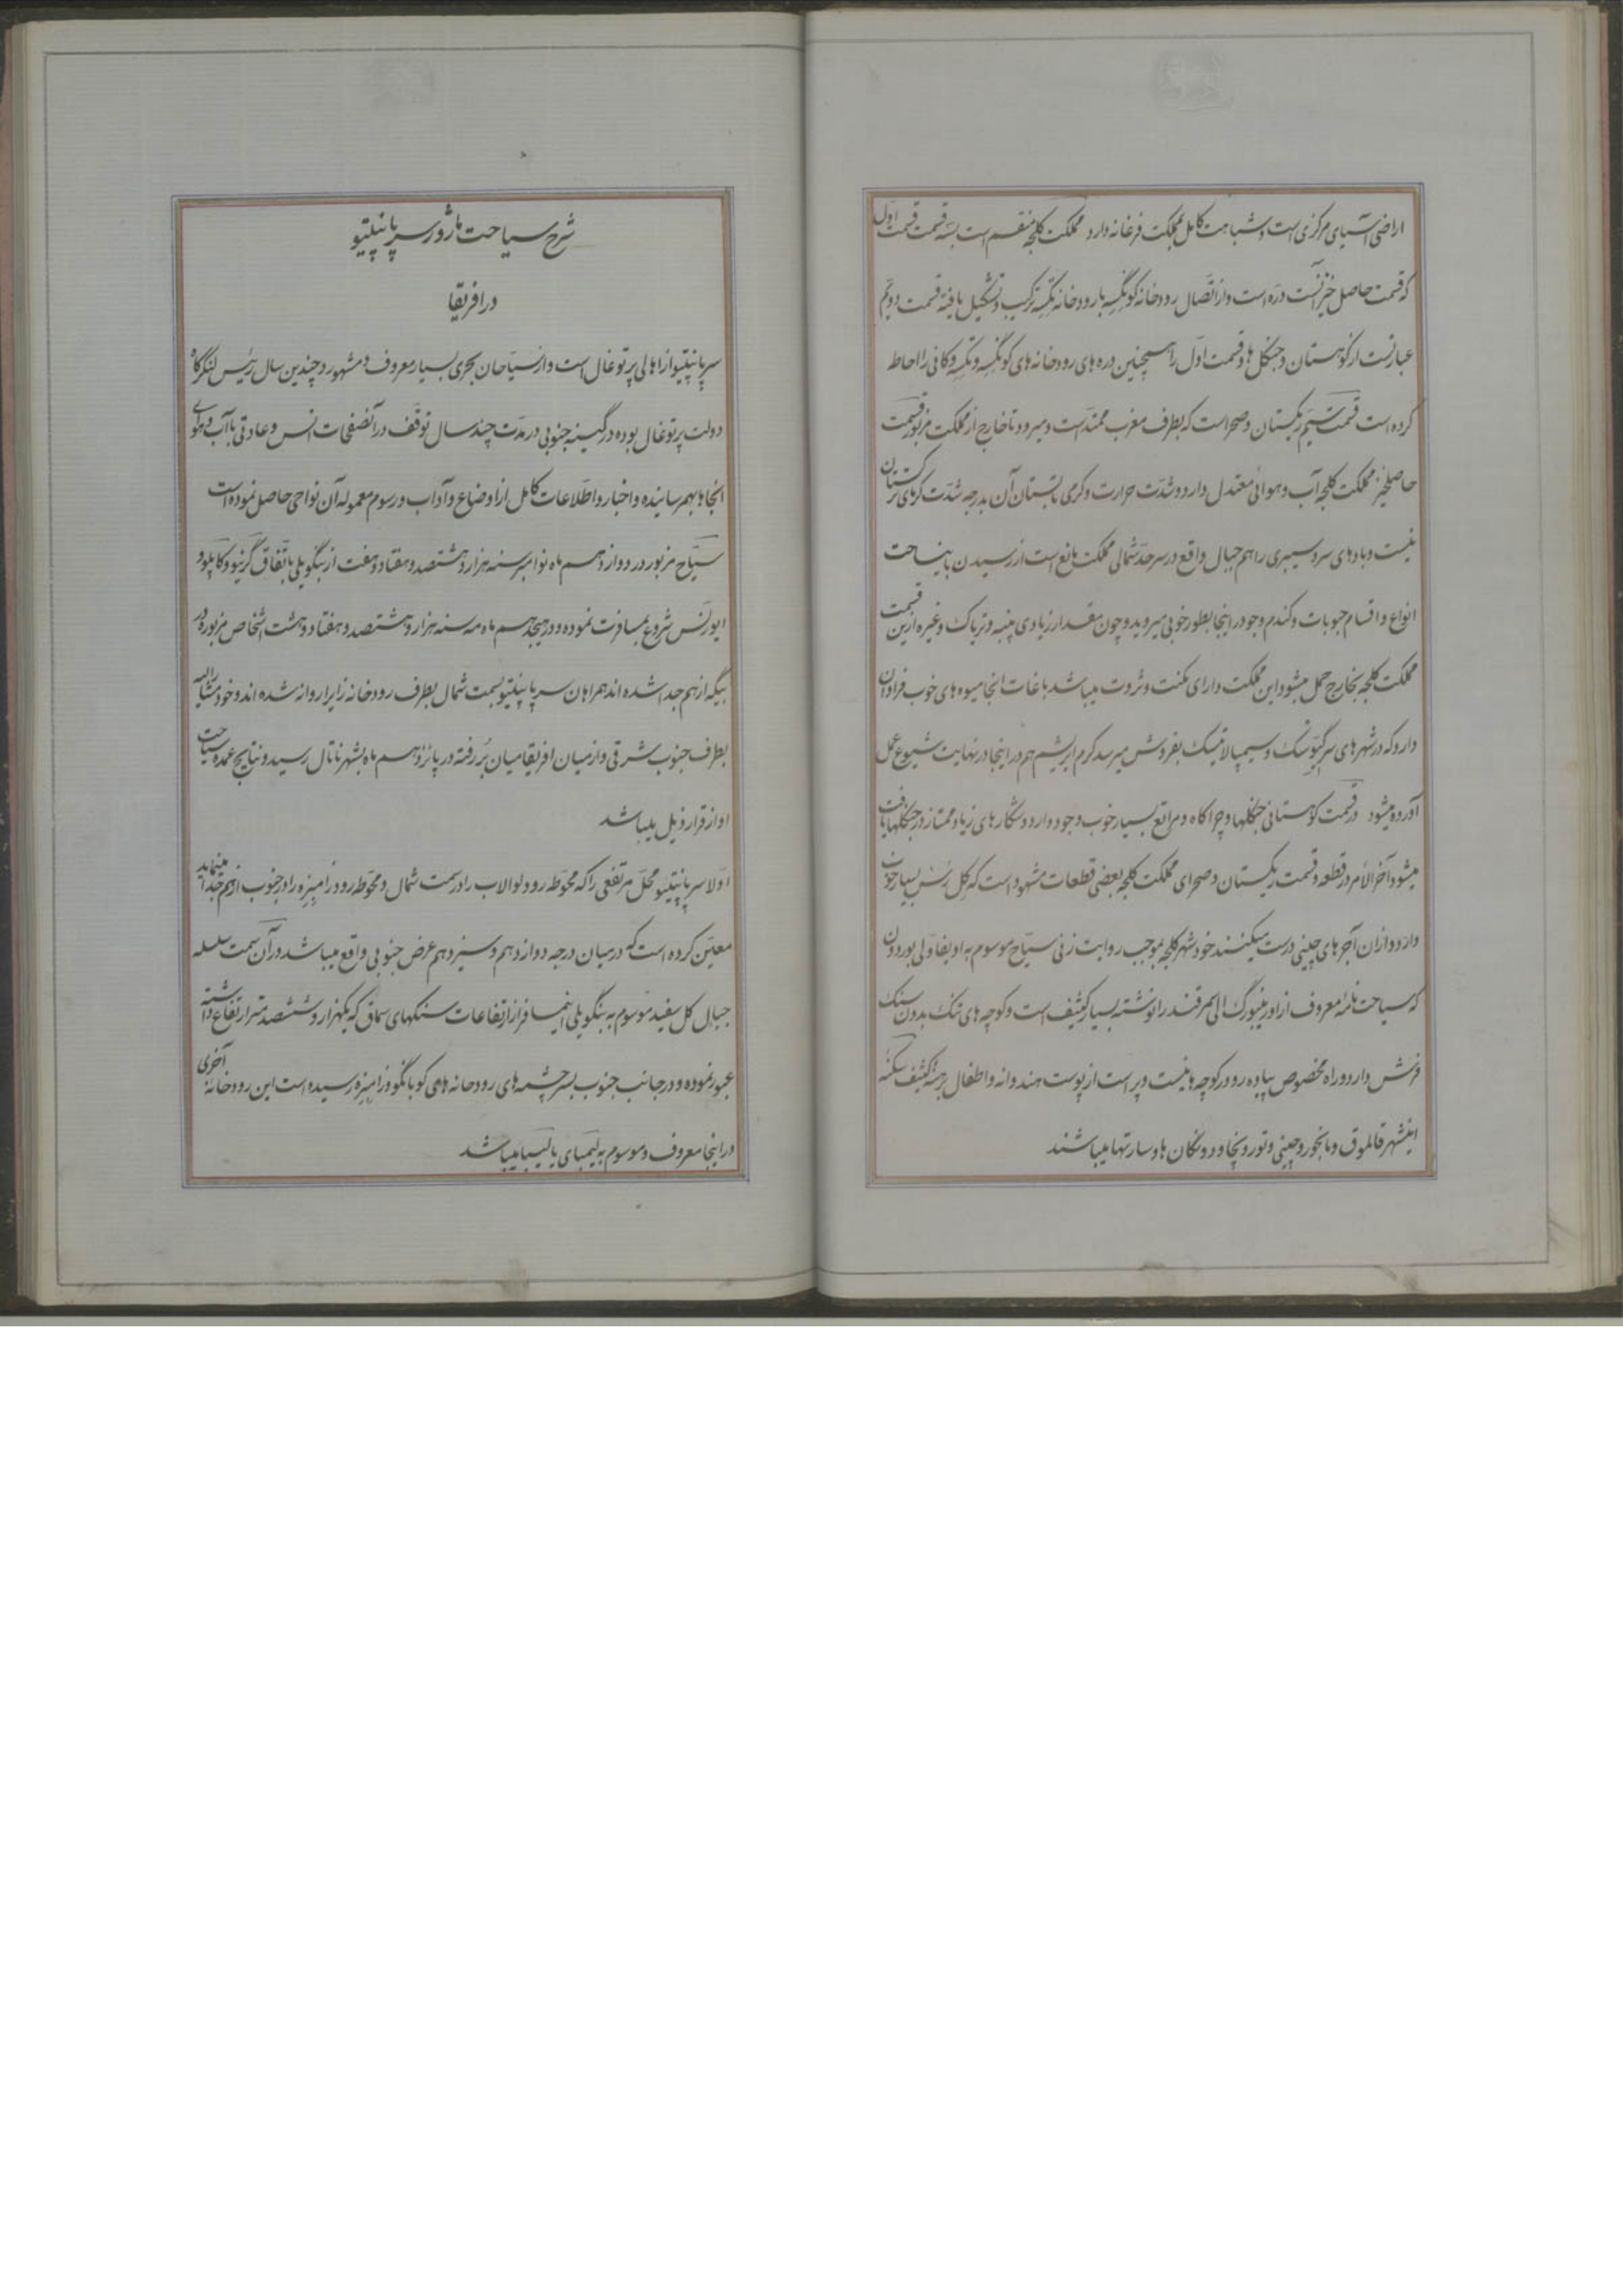 اراضی آسیای مرکزی است و شباهت کامل بمملکت فرغانه دارد مملکت کلجه منقسم است بسه قسمت قسمت اول
که قسمت حاصل خیز آنست دره است و از اتصال رودخانه کونگسه با رودخانه تکسه ترکیب و تشکیل یافته قسمت دویم
عبارتست از کوهستان و جنگل ها و قسمت اول را همچنین دره های رودخانه های کونگسه و تکسه و کافی را احاطه
کرده است قسمت سیم ریکستان و صحرا است که بطرف مغرب ممتد است و میرود تا خارج از مملکت مزبور قسمت
حاصلخیز مملکت کلجه آب و هوائی معتدل دارد و شدت حرارت و گرمی تابستان آن بدرجه شدت گرمای ترکستان
نیست و بادهای سرد سیبری را هم جبال واقع در سرحد شمالی مملکت مانع است از رسیدن باینساحت
انواع و اقسام حبوبات و کندم و جو در اینجا بطور خوبی میروید و چون مقدار زیادی پنبه و تریاک و غیره ازین قسمت
مملکت کلجه بخارج حمل میشود این مملکت دارای مکنت و ثروت میباشد باغات انجا میوه های خوب فراوان
دارد که در شهرهای سرکیوسک و سیمپالاتینسک بفروش میرسد کرم ابریشم هم در اینجا در نهایت شیوع بعمل
آورده میشود در قسمت کوهستانی جنگلها و چراکاه و مراتع بسیار خوب وجود دارد و شکارهای زیاد و ممتاز در جنگلها یافت
میشود آخر الامر در قطعه و قسمت ریکستان و صحرای مملکت کلجه بعضی قطعات مشهود است که کل رس بسیار خوب
دارد و از ان آجرهای چینی درست میکنند خود شهر کلجه بموجب روایت زنی سیاح موسوم به اویفاولی بوردون
که سیاحت نامه معروف از اورنیبورگ الی سمرقند را نوشته بسیار کثیف است و کوچه های تنک بدون سنک
فرش دارد و راه مخصوص پیاده رو در کوچه ها نیست و پر است از پوست هندوانه و اطفال برهنه کثیف سکنه
اینشهر قالموق و مانجور و چینی و تورونچا و دونکان ها و سارتها میباشند
شرح سیاحت ماژور سرپاپنیتو
در افریقا
سرپاپنیتو از اهالی پرتوغال است و از سیاحان بحری بسیار معروف و مشهور و چندین سال رئیس لنگرگاه
دولت پرتوغال بوده در گینه جنوبی در مدت چند سال توقف در آنصفحات انس و عادتی با آب و هوای
انجاها بهم رسانیده و اخبار و اطلاعات کامل از اوضاع و آداب و رسوم معموله آن نواحی حاصل نموده است
سیاح مزبور در دوازدهم ماه نوامبر سنه هزار و هشتصد و هفتاد و هفت از بنگویلی باتفاق گرنیو و کاپلو و
ایورنس شروع بمسافرت نموده و در هیجدهم ماه مه سنه هزار و هشتصد و هفتاد و هشت اشخاص مزبوره در
بیگه از هم جدا شده اند همراهان سرپاپنیتو بسمت شمال بطرف رودخانه زایر روانه شده اند و خود مشارالیه
بطرف جنوب شرقی و از میان افریقا میان بُر رفته در پانزدهم ماه بشهر ناتال رسید و نتایج عمده سیاحت
او از قرار ذیل میباشد
اولا سرپاپنیتو محل مرتفعی را که محوطه رود لوالاب را در سمت شمال و محوطه رود زامبزه را در جنوب از هم جدا مینماید
معین کرده است که در میان درجه دوازدهم و سیزدهم عرض جنوبی واقع میباشد در آن سمت سلسله
جبال کل سفید موسوم به بنگویلی اینمسافر از ارتفاعات سنکهای سماق که یکهزار و ششصد متر ارتفاع داشته
عبور نموده و در جانب جنوب بسرچشمه های رودخانه های کوبانگو و زامبزه رسیده است این رودخانه آخری
در اینجا معروف و موسوم به لیمبای یا لیبا میباشد